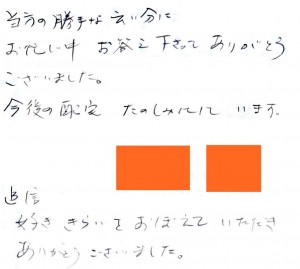 当方の勝手な言い分に
お忙し中 お答え下さって ありがとう
ございました。
今後の配定 たのしみにして います。
追信
好き きらいを おぼえて いただき
ありがとう ございました。